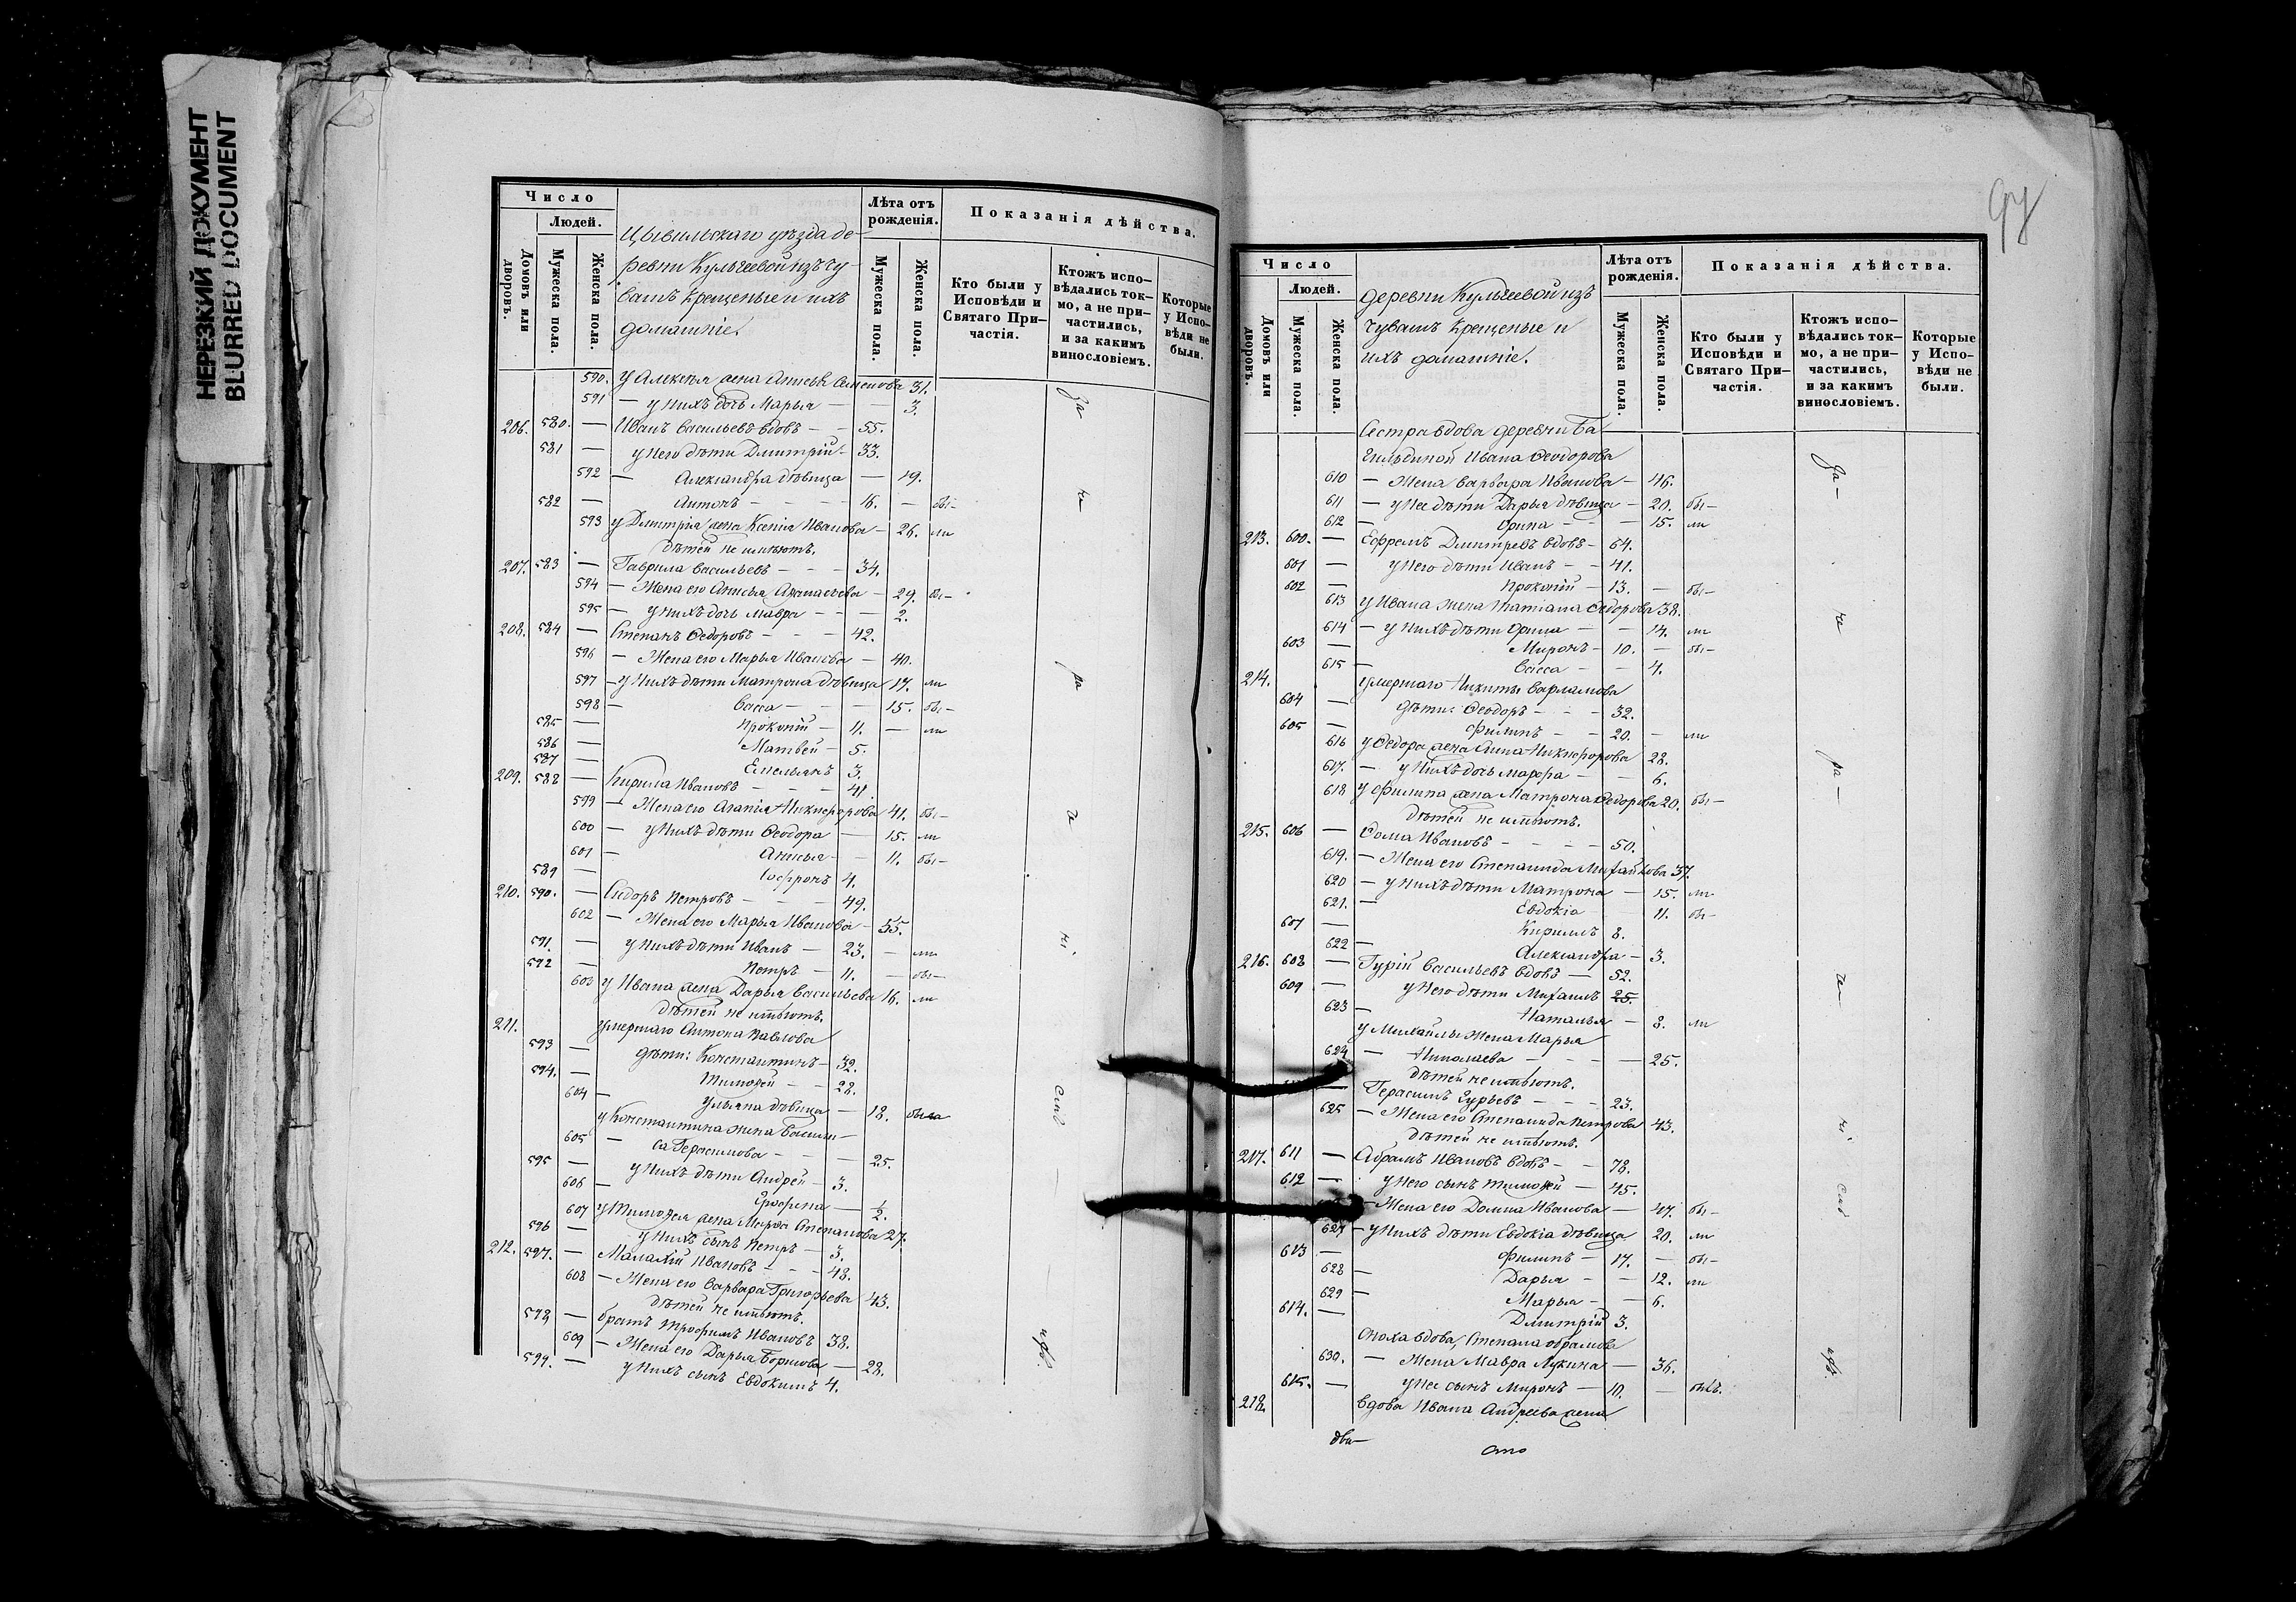 НЕРЕЗКИЙ ДОКУМЕНТ
BLURRED DOCUMENT
Число
Людей.
Домовъ или дворовъ.
Мужеска пола.
Женска пола.
Цывильскаго уѣзда де-
ревни Кульгеевой изъ чу-
вашъ крещеные и ихъ
домашніе.
Лѣта отъ рожденія.
Мужеска пола.
Женска пола.
Показанія дѣйства.
Кто были у Исповѣди и Святаго Причастія.
Ктожъ исповѣдались токмо, а не причастились, и за какимъ винословіемъ.
Которые у Исповѣди не были.
590. у Алексѣя жена Анисья Семенова 31.
591 — у нихъ дочь Марья — 3.
206. 580. — Иванъ Васильевъ вдовъ — 55.
581 — у него дѣти Дмитрій — 33.
592 — Александра дѣвица — 19.
582 — Антонъ — 16. — бы-
593 у Дмитрія жена Ксенія Иванова — 26. ли
дѣтей не имѣютъ.
207. 583 — Гаврила Васильевъ — 34.
594 — Жена его Анисья Афанасьева — 29. бы-
595 — у нихъ дочь Мавра — 2.
208. 584 — Степанъ Федоровъ — 42.
596 — Жена его Марья Иванова — 40.
597 — у нихъ дѣти Матрона дѣвица 17. ли
598 — Васса — 15. бы-
585 — Прокопій — 11. — ли
586 — Матвей — 5.
587 — Емельянъ 3.
209. 588 — Кирила Ивановъ — 41.
599 — Жена его Агапія Никифорова 41. бы-
600 — у нихъ дѣти Феодора — 15. ли
601 — Анисья — 11. бы-
589 — Софронъ 4.
210. 590. — Сидоръ Петровъ — 49.
602 — Жена его Марья Иванова — 55.
591. — у нихъ дѣти Иванъ — 23. — ли
592 — Петръ — 11. — бы-
603 у Ивана жена Дарья Васильева 16. ли
дѣтей не имѣютъ.
211. умершаго Антона Павлова
593 — дѣти: Константинъ — 32.
594. — Тимофей — 28.
604 — Ульяна дѣвица — 18. была
у Константина жена Васили-
605 — са Герасимова — 25.
595 — у нихъ дѣти Андрей — 3.
606 — Графена — 1/2.
607 у Тимофея жена Марфа Степанова 27.
596 — у нихъ сынъ Петръ — 3.
212. 597. — Малахій Ивановъ — 48.
608 — Жена его Варвара Григорьева 43.
дѣтей не имѣютъ.
598 — братъ Трофимъ Ивановъ 38.
609 — Жена его Дарья Борисова — 28.
599. — у нихъ сынъ Евдокимъ 4.
За
не
ра
че
ні.
Число
Людей.
Домовъ или дворовъ.
Мужеска пола.
Женска пола.
деревни Кульгеевой изъ
чувашъ крещеные и
ихъ домашніе.
Лѣта отъ рожденія.
Мужеска пола.
Женска пола.
Показанія дѣйства.
Кто были у Исповѣди и Святаго Причастія.
Ктожъ исповѣдались токмо, а не причастились, и за какимъ винословіемъ.
Которые у Исповѣди не были.
Сестра вдова деревни Ба
гильдиной Ивана Феодорова
610 — Жена Варвара Иванова — 46.
611 — у нее дѣти Дарья дѣвица — 20. бы-
612 — Орина — 15. ли
213. 600. — Ефремъ Дмитревъ вдовъ — 64.
601 — у него дѣти Иванъ — 41.
602 — Прокопій — 13. — бы-
613 у Ивана жена Татiана Федорова 38.
614 — у нихъ дѣти Орина — 14. ли
603 — Миронъ — 10. — бы-
615 — Васса — 4.
214. умершаго Никиты Варламова
604 — дѣти: Феодоръ — 32.
605 — Филипъ — 20. — ли
616 у Федора жена Анна Никифорова 28.
617. — у нихъ дочь Марфа — 6.
618 у Филипа жена Матрона Федорова 20. бы-
дѣтей не имѣютъ.
215. 606 — Фома Ивановъ — 50.
619. — Жена его Степанида Михайлова 37.
620 — у нихъ дѣти Матрона — 15. ли
621. — Евдокіа — 11. бы-
607 — Кириллъ 8.
622 — Александра — 3.
216. 608 — Гурій Васильевъ вдовъ — 52.
609 — у него дѣти Михаилъ 25.
623 — Наталья — 8. ли
у Михайлы Жена Марья
624 — Николаева — 25.
дѣтей не имѣютъ.
— Герасимъ Гурьевъ — 23.
625 — Жена его Степанида Петрова 43.
дѣтей не имѣютъ.
217. 611 — Абрамъ Ивановъ вдовъ — 78.
612 — у него сынъ Тимофей — 45.
— Жена его Домна Иванова — 47. бы-
627 — у нихъ дѣти Евдокіа дѣвица 20. ли
613 — Филипъ — 17. — бы-
628 — Дарья — 12. ли
629 — Марья — 6.
614. — Дмитрій 3.
сноха вдова, Степана Абрамова
630. — Жена Мавра Лукина — 36.
615. — у нее сынъ Миронъ — 10. — былъ.
218. вдова Ивана Андреева жена
За-
не
ра-
че
ні